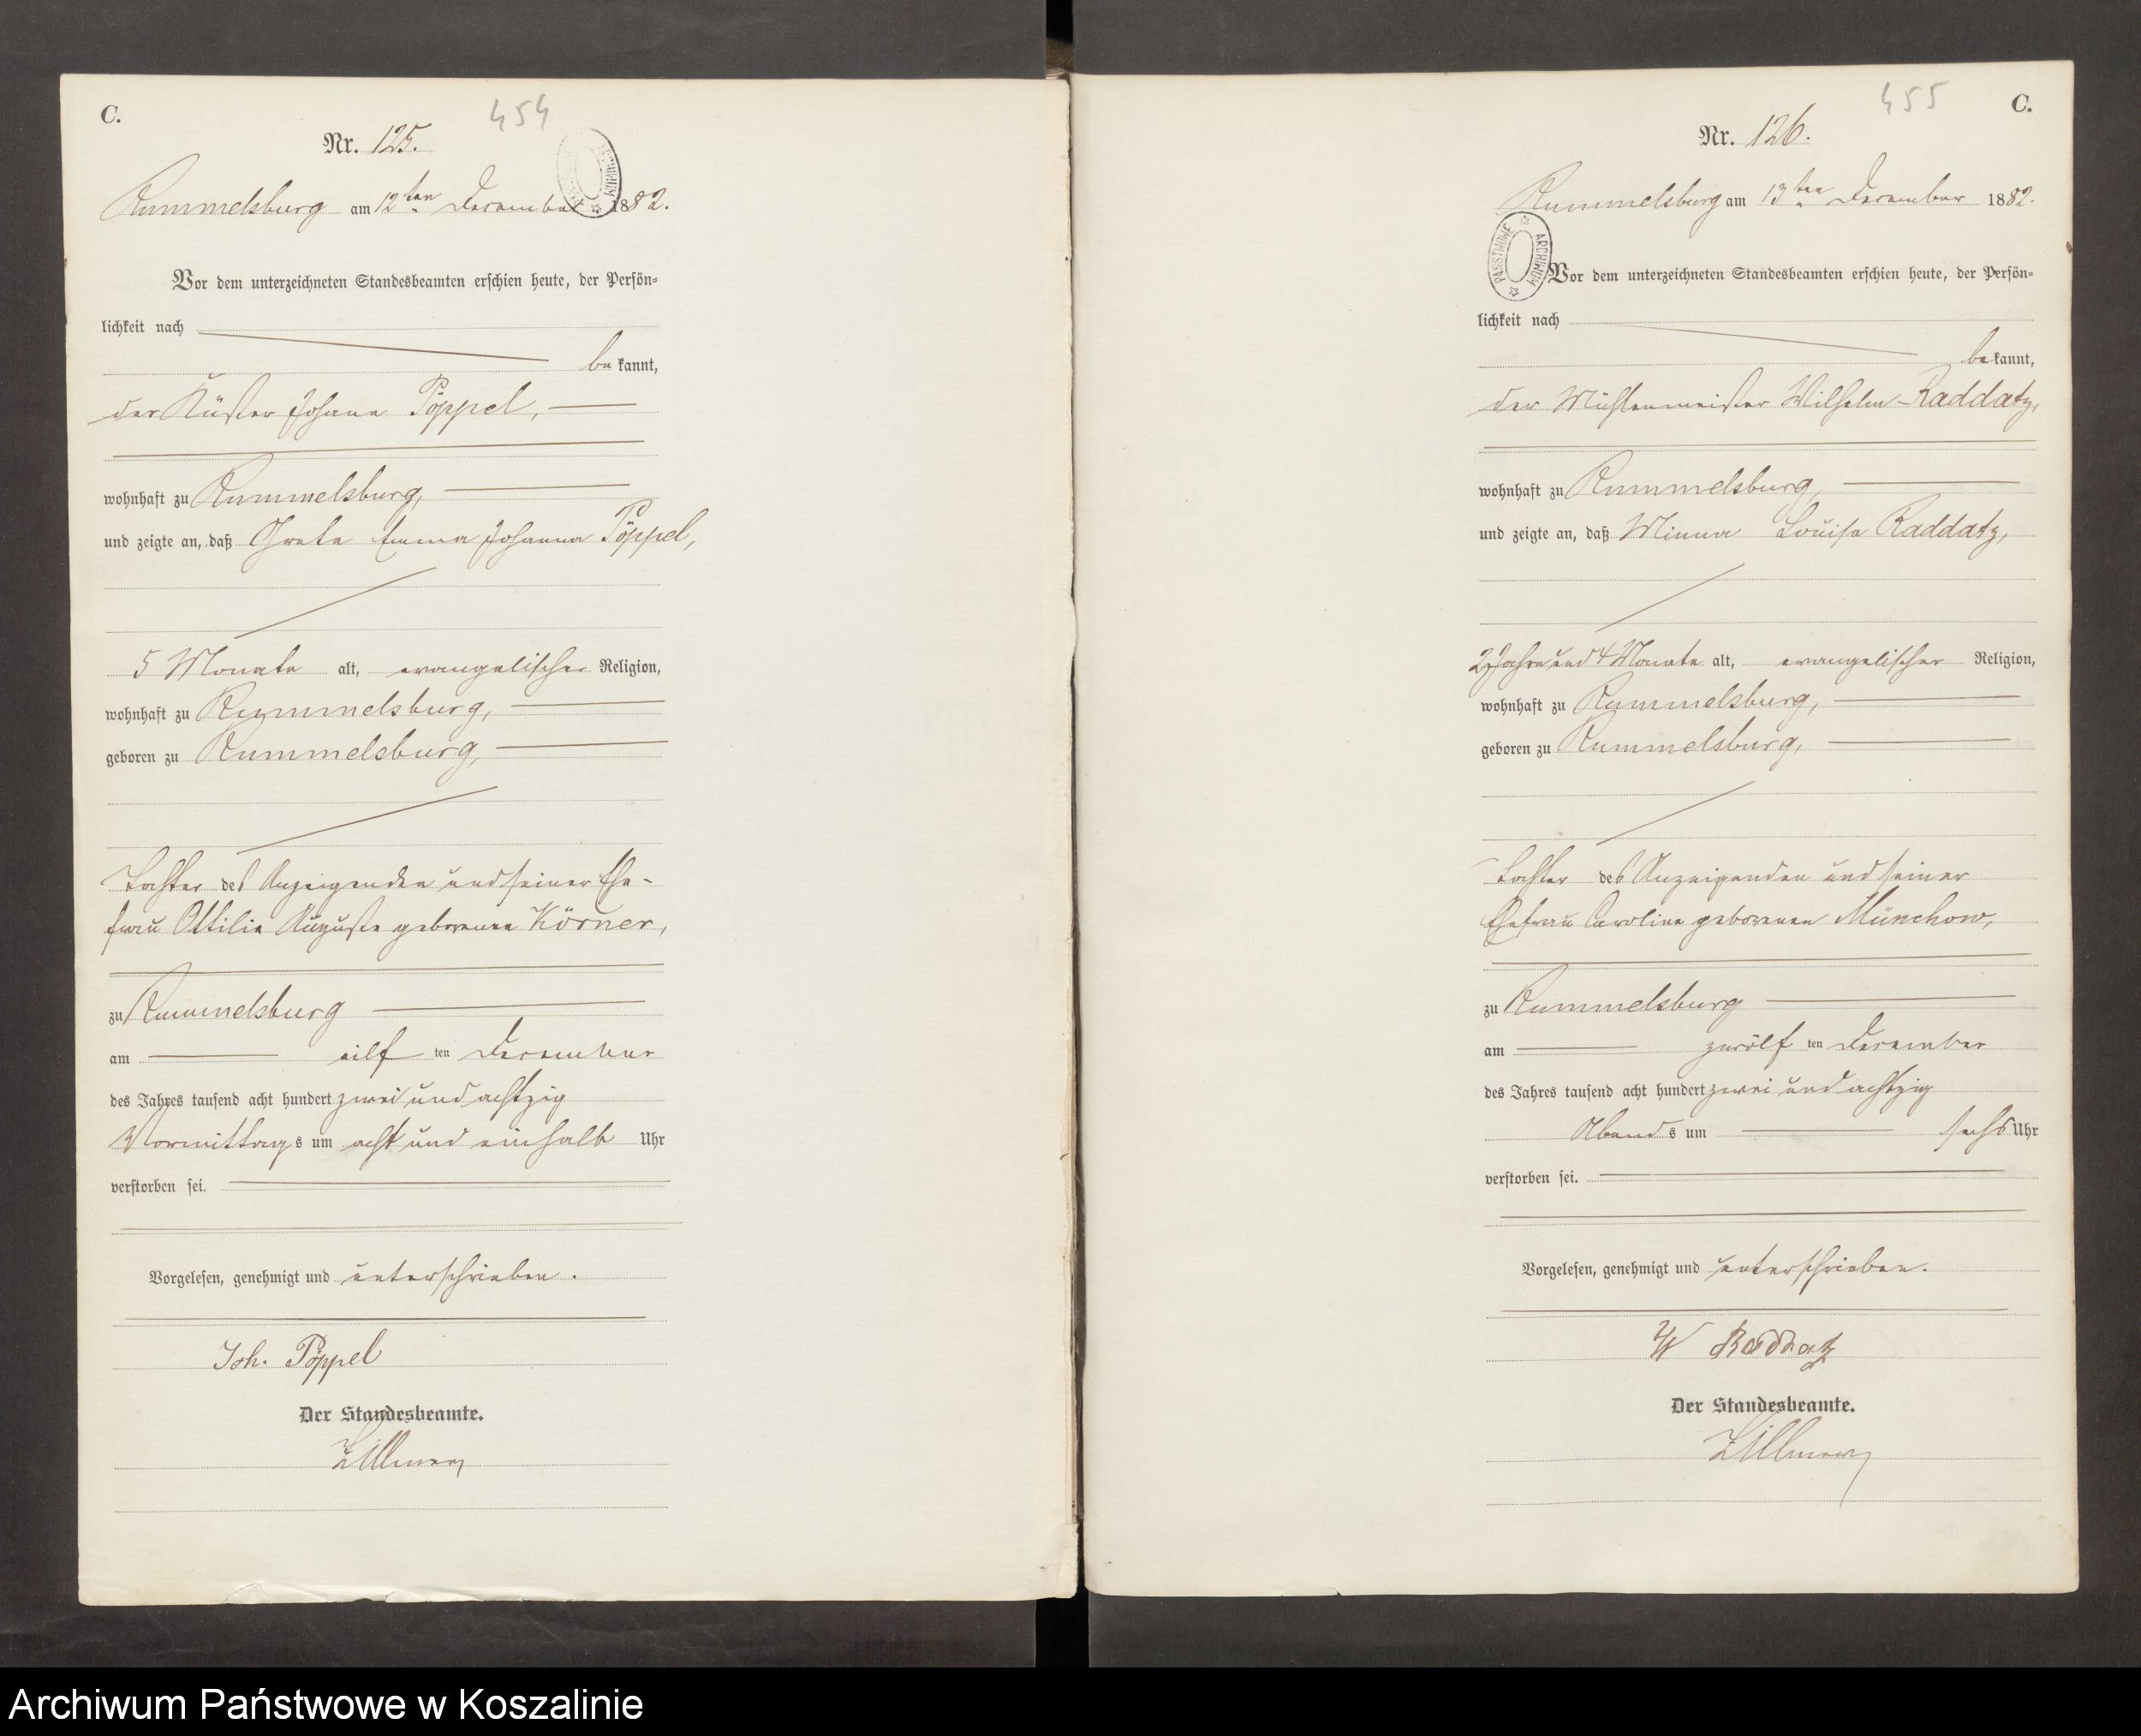 C.
454
Nr. 125.
Rummelsburg am 12ten December 1882.
Vor dem unterzeichneten Standesbeamten erschien heute, der Persön-
lichkeit nach
bekannt,
der Küster Johann Pöppel,
wohnhaft zu Rummelsburg,
und zeigte an, daß Grete Emma Johanna Pöppel,
5 Monate alt, evangelischer Religion,
wohnhaft zu Rummelsburg,
geboren zu Rummelsburg,
Tochter des Anzeigenden und seiner Ehe-
frau Ottilie Auguste geborenen Körner,
zu Rummelsburg
am eilften December
des Jahres tausend acht hundert zwei und achtzig
Vormittags um acht und einhalb Uhr
verstorben sei.
Vorgelesen, genehmigt und unterschrieben.
Joh. Pöppel
Der Standesbeamte.
Zillmer
455
C.
Nr. 126.
Rummelsburg am 13ten December 1882.
PAŃSTWOWE ARCHIWUM
Vor dem unterzeichneten Standesbeamten erschien heute, der Persön-
lichkeit nach
bekannt,
der Mühlenmeister Wilhelm Raddatz,
wohnhaft zu Rummelsburg,
und zeigte an, daß Minna Louise Raddatz,
2 Jahre und 4 Monate alt, evangelischer Religion,
wohnhaft zu Rummelsburg,
geboren zu Rummelsburg,
Tochter des Anzeigenden und seiner
Ehefrau Caroline geborenen Münchow,
zu Rummelsburg
am zwölften December
des Jahres tausend acht hundert zwei und achtzig
Abends um sechs Uhr
verstorben sei.
Vorgelesen, genehmigt und unterschrieben.
W Raddatz
Der Standesbeamte.
Zillmer
Archiwum Państwowe w Koszalinie